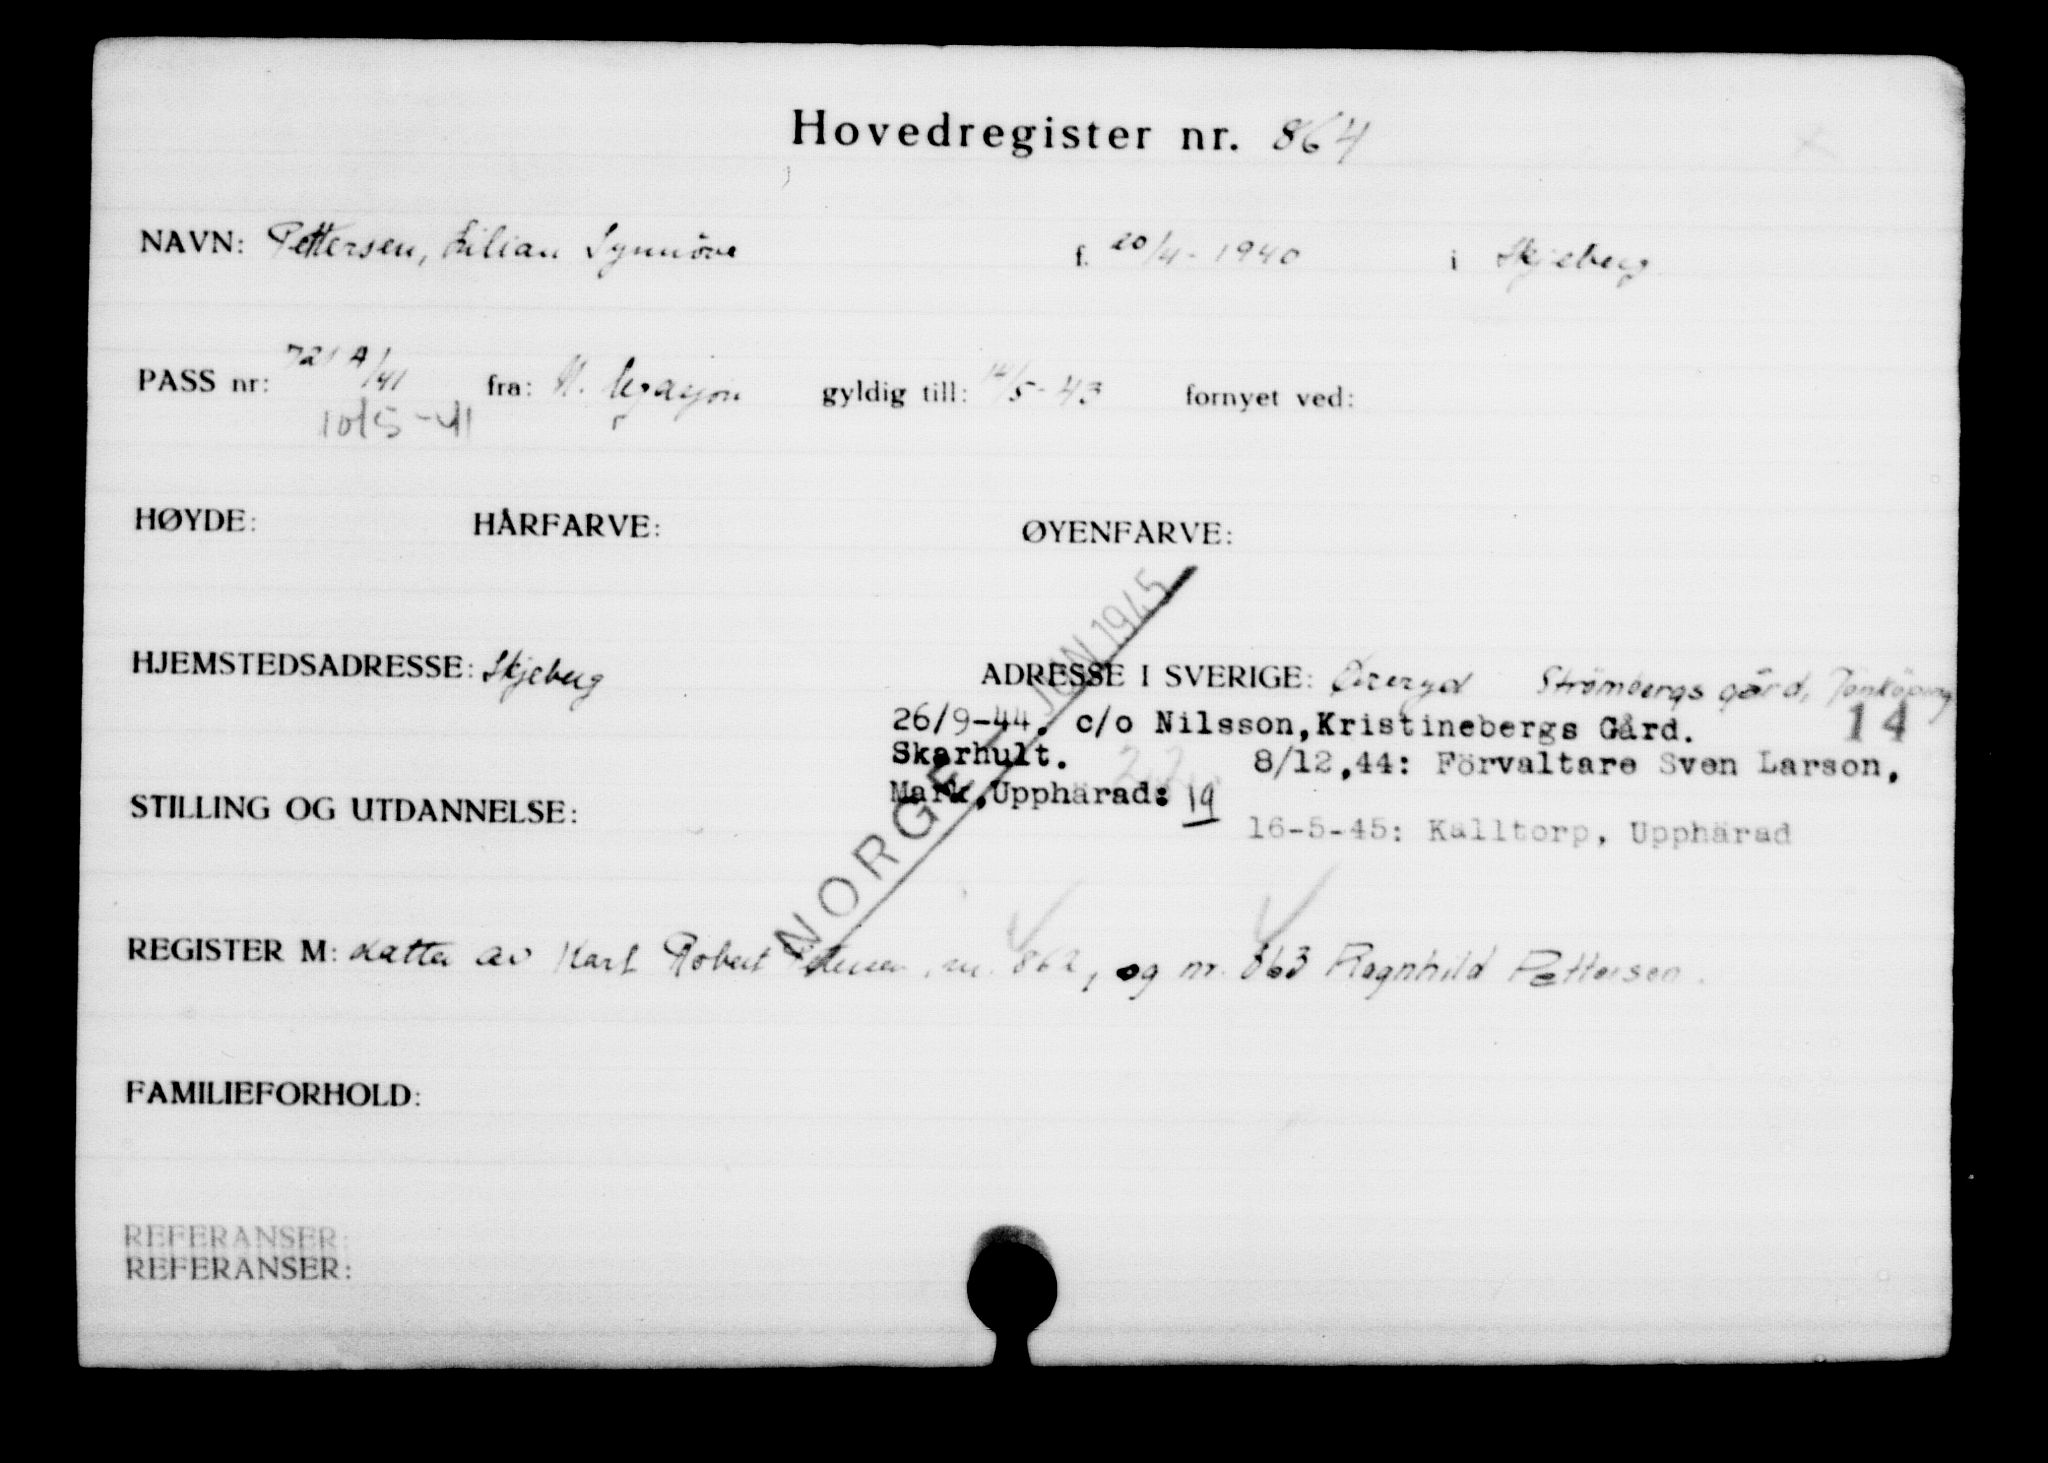 Hovedregister nr. 864
NAVN: Pettersen, Lilian Synnöve f. 20/4-1940 i Skjeberg
PASS nr: 721 A/41 fra: N. legasjon gyldig till: 14/5-43 fornyet ved:
10/5-41
HØYDE: HÅRFARVE: ØYENFARVE:
HJEMSTEDSADRESSE: Skjeberg ADRESSE I SVERIGE: Öreryd Strömbergs gård, Jönköping
26/9-44. c/o Nilsson,Kristinebergs Gård. 14
Skarhult. 8/12,44: Förvaltare Sven Larson,
Mark,Upphärad: 19
STILLING OG UTDANNELSE:
16-5-45: Källtorp, Upphärad
NORGE JUN 1945
REGISTER M: datter av Karl Robert Pettersen, nr. 862, og nr. 863 Ragnhild Pettersen.
FAMILIEFORHOLD:
REFERANSER:
REFERANSER: